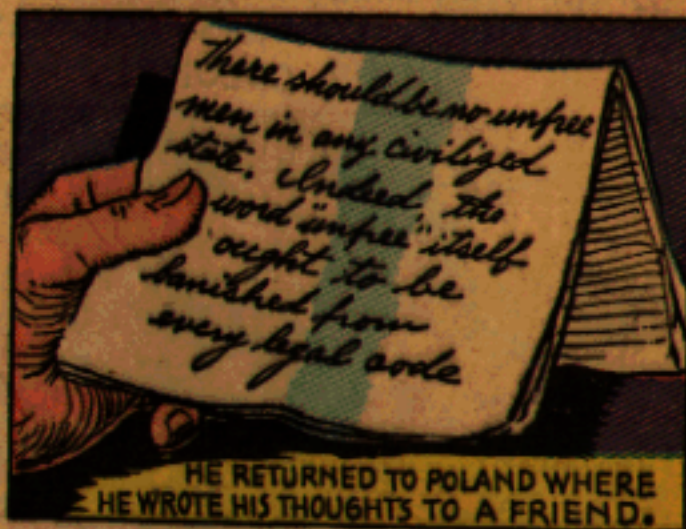 There should be no unfree
men in any civilized
state. Indeed, the
word "unfree" itself
ought to be
banished from
every legal code
HE RETURNED TO POLAND WHERE
HE WROTE HIS THOUGHTS TO A FRIEND.